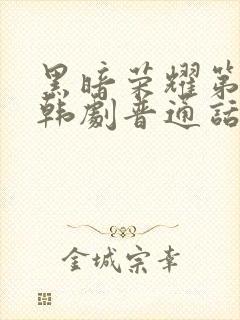 黑暗荣耀第
韩劇普通话
金城宗幸